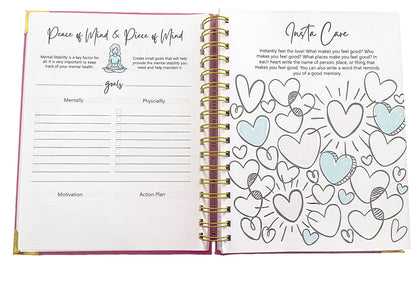 Peace of Mind & Piece of Mind
Mental Stability is a key factor for
all. It is very important to keep
track of your mental health
Create small goals that will help
provide the mental stability you
need and help maintain it
goals
Mentally
Physcially
Motivation
Action Plan
Insta Care
Instantly feel the love! What makes you feel good? Who
makes you feel good? What places make you feel good? In
in each heart write the name of person, place, or thing that
makes you feel good. You can also write a word that reminds
you of a good memory.